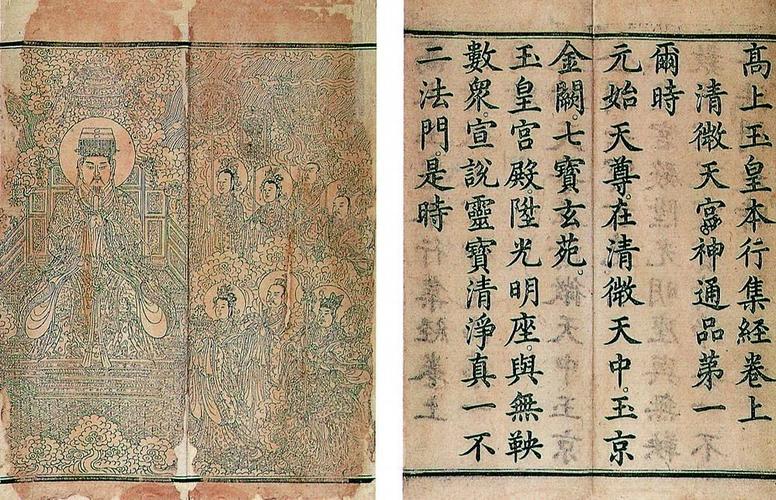 高上玉皇本行集經卷上
清微天宮神通品第一
爾時
元始天尊。在清微天中。玉京
金闕。七寶玄苑。
玉皇宮殿陞光明座。與無鞅
數衆。宣說靈寶清淨真一不
二法門是時